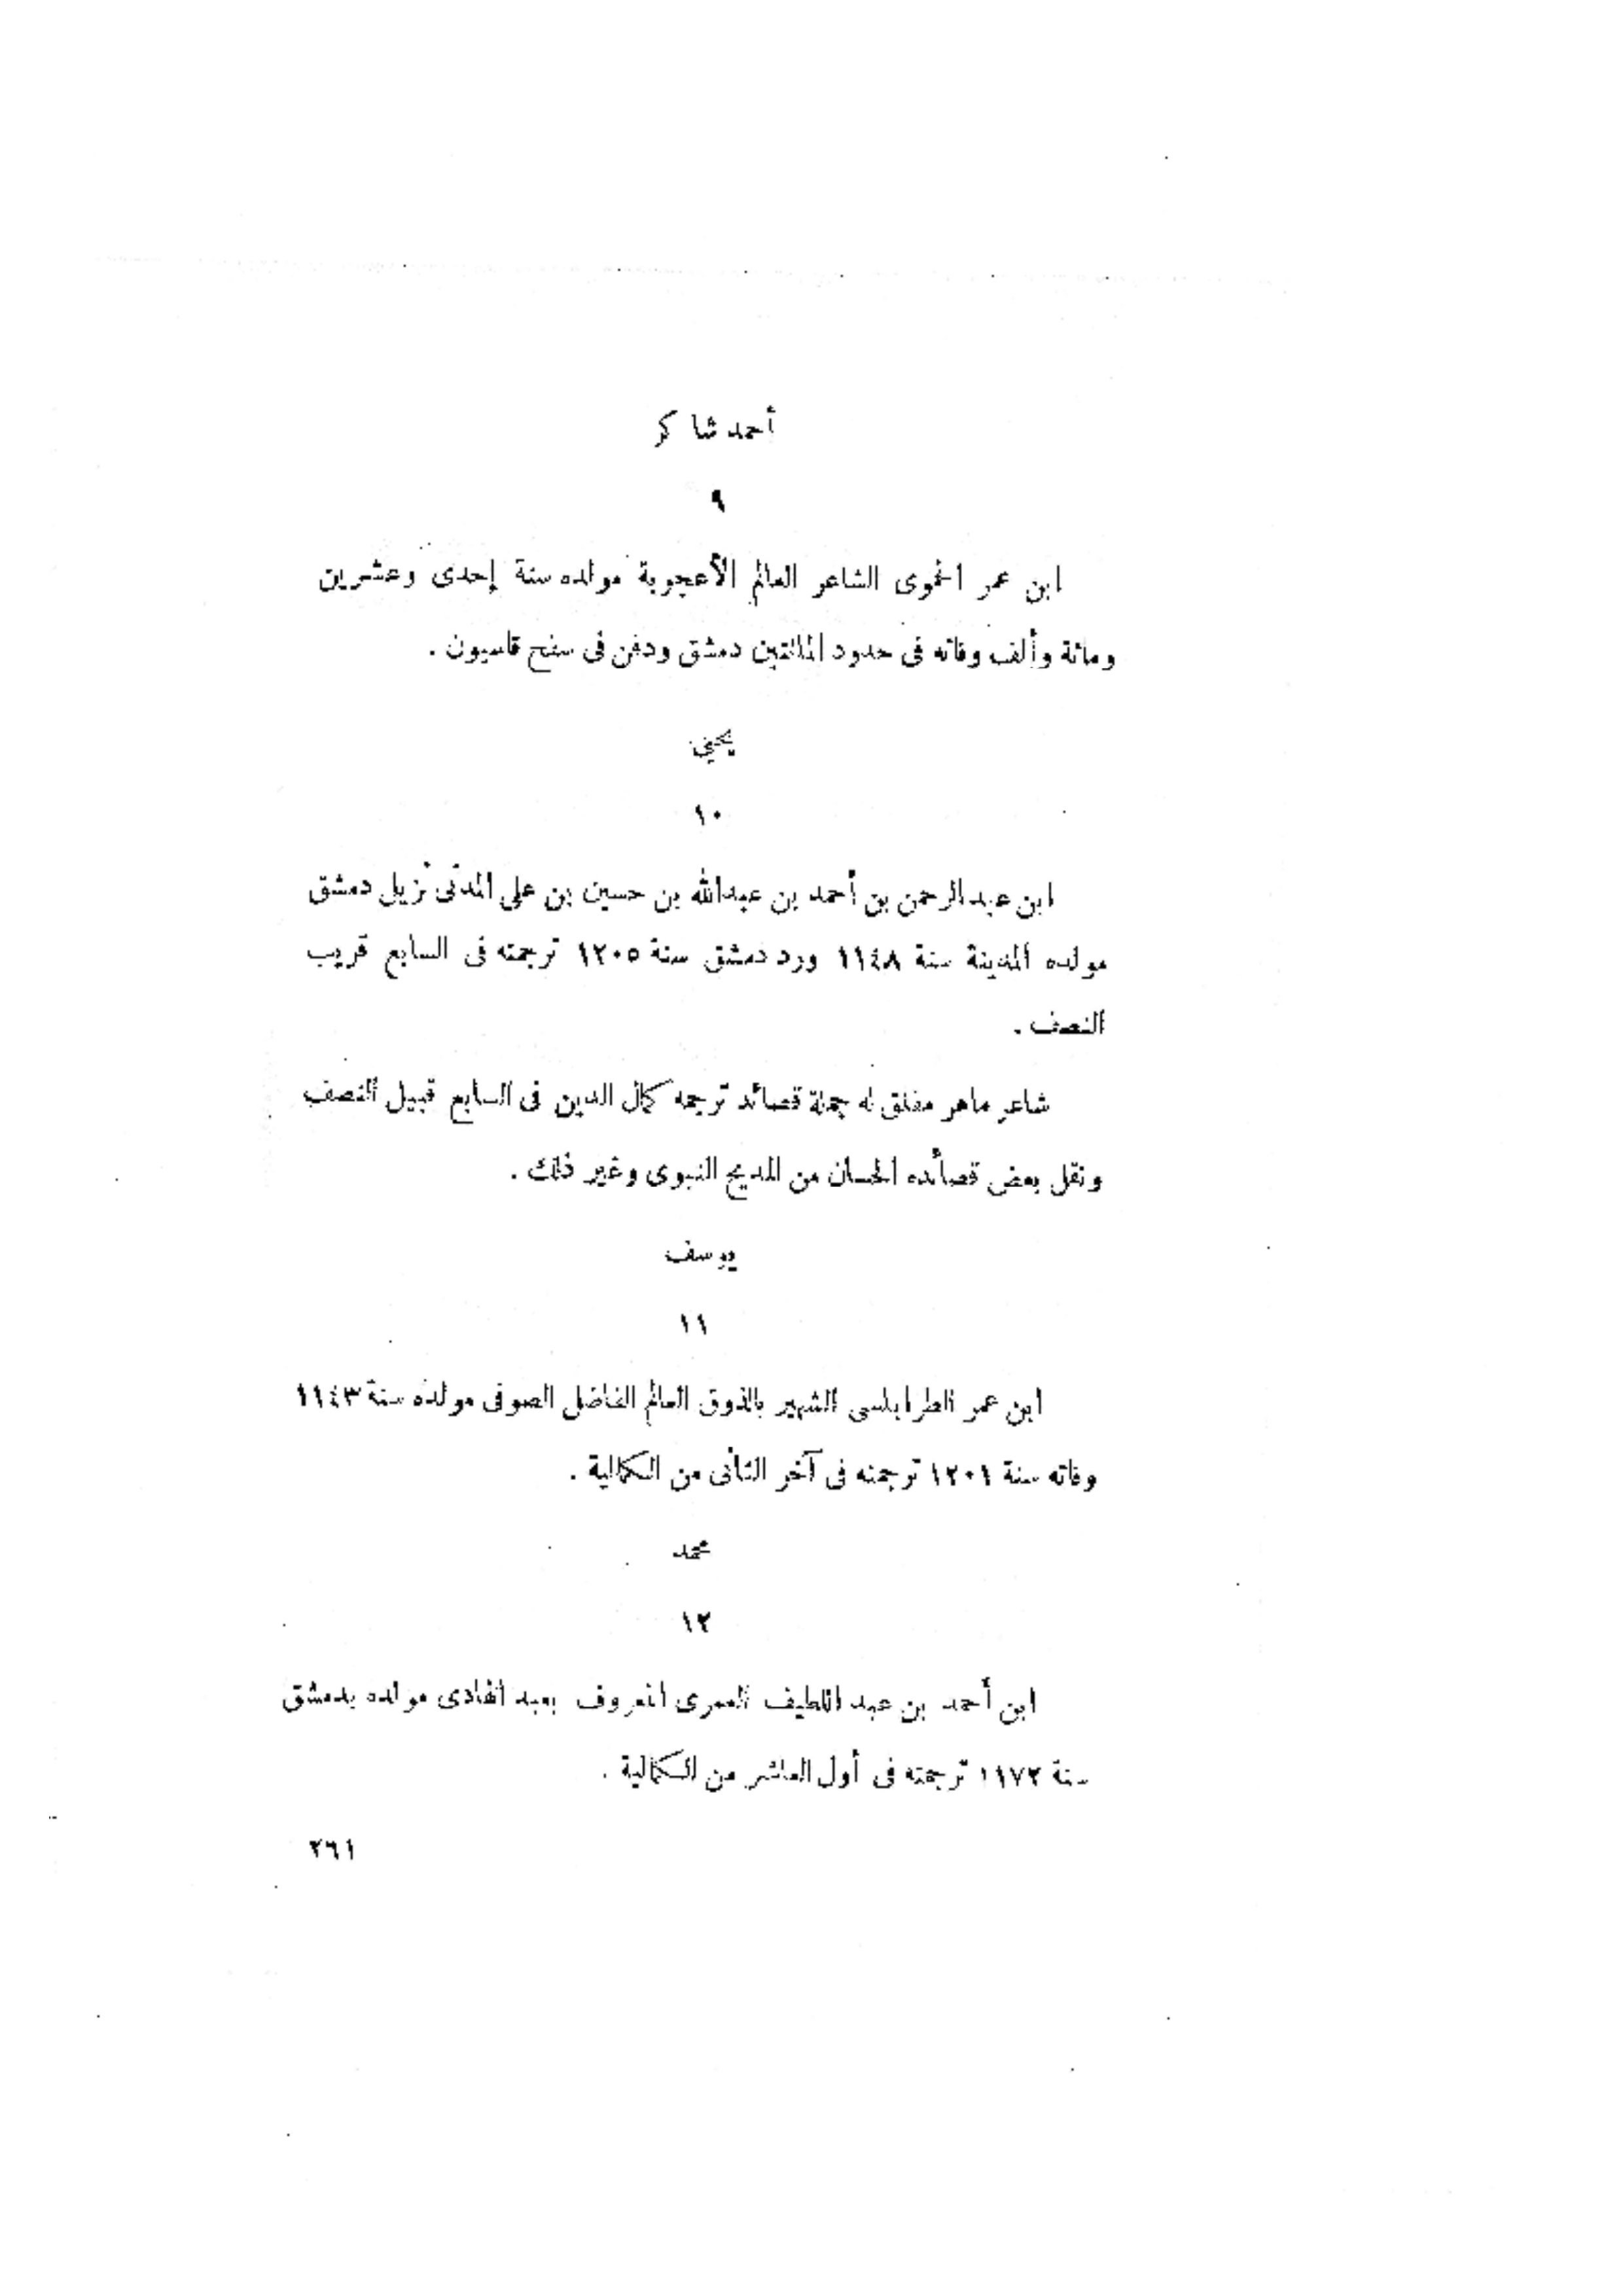 أحمد شاكر
٩
ابن عمر الحموى الشاعر العالم الأعجوبة مولده سنة إحدى وعشرين
ومائة وألف وفاته فى حدود المائتين دمشق ودفن فى سفح قاسيون .
يحيى
١٠
ابن عبد الرحمن بن أحمد بن عبدالله بن حسين بن على المدنى نزيل دمشق
مولده المدينة سنة ١١٤٨ ورد دمشق سنة ١٢٠٥ ترجمته فى السابع قريب
النصف .
شاعر ماهر مفلق له جملة قصائد ترجمه كمال الدين فى السابع قبيل النصف
ونقل بعض قصائده الحسان من المديح النبوى وغير ذلك .
يوسف
١١
ابن عمر الطرابلسى الشهير بالذوق العالم الفاضل الصوفى مولده سنة ١١٤٣
وفاته سنة ١٢٠١ ترجمته فى آخر الثانى من الكمالية .
محمد
١٢
ابن أحمد بن عبد اللطيف العمرى المعروف بعبد الهادى مولده بدمشق
سنة ١١٧٢ ترجمته فى أول العاشر من الكمالية .
٢٦١